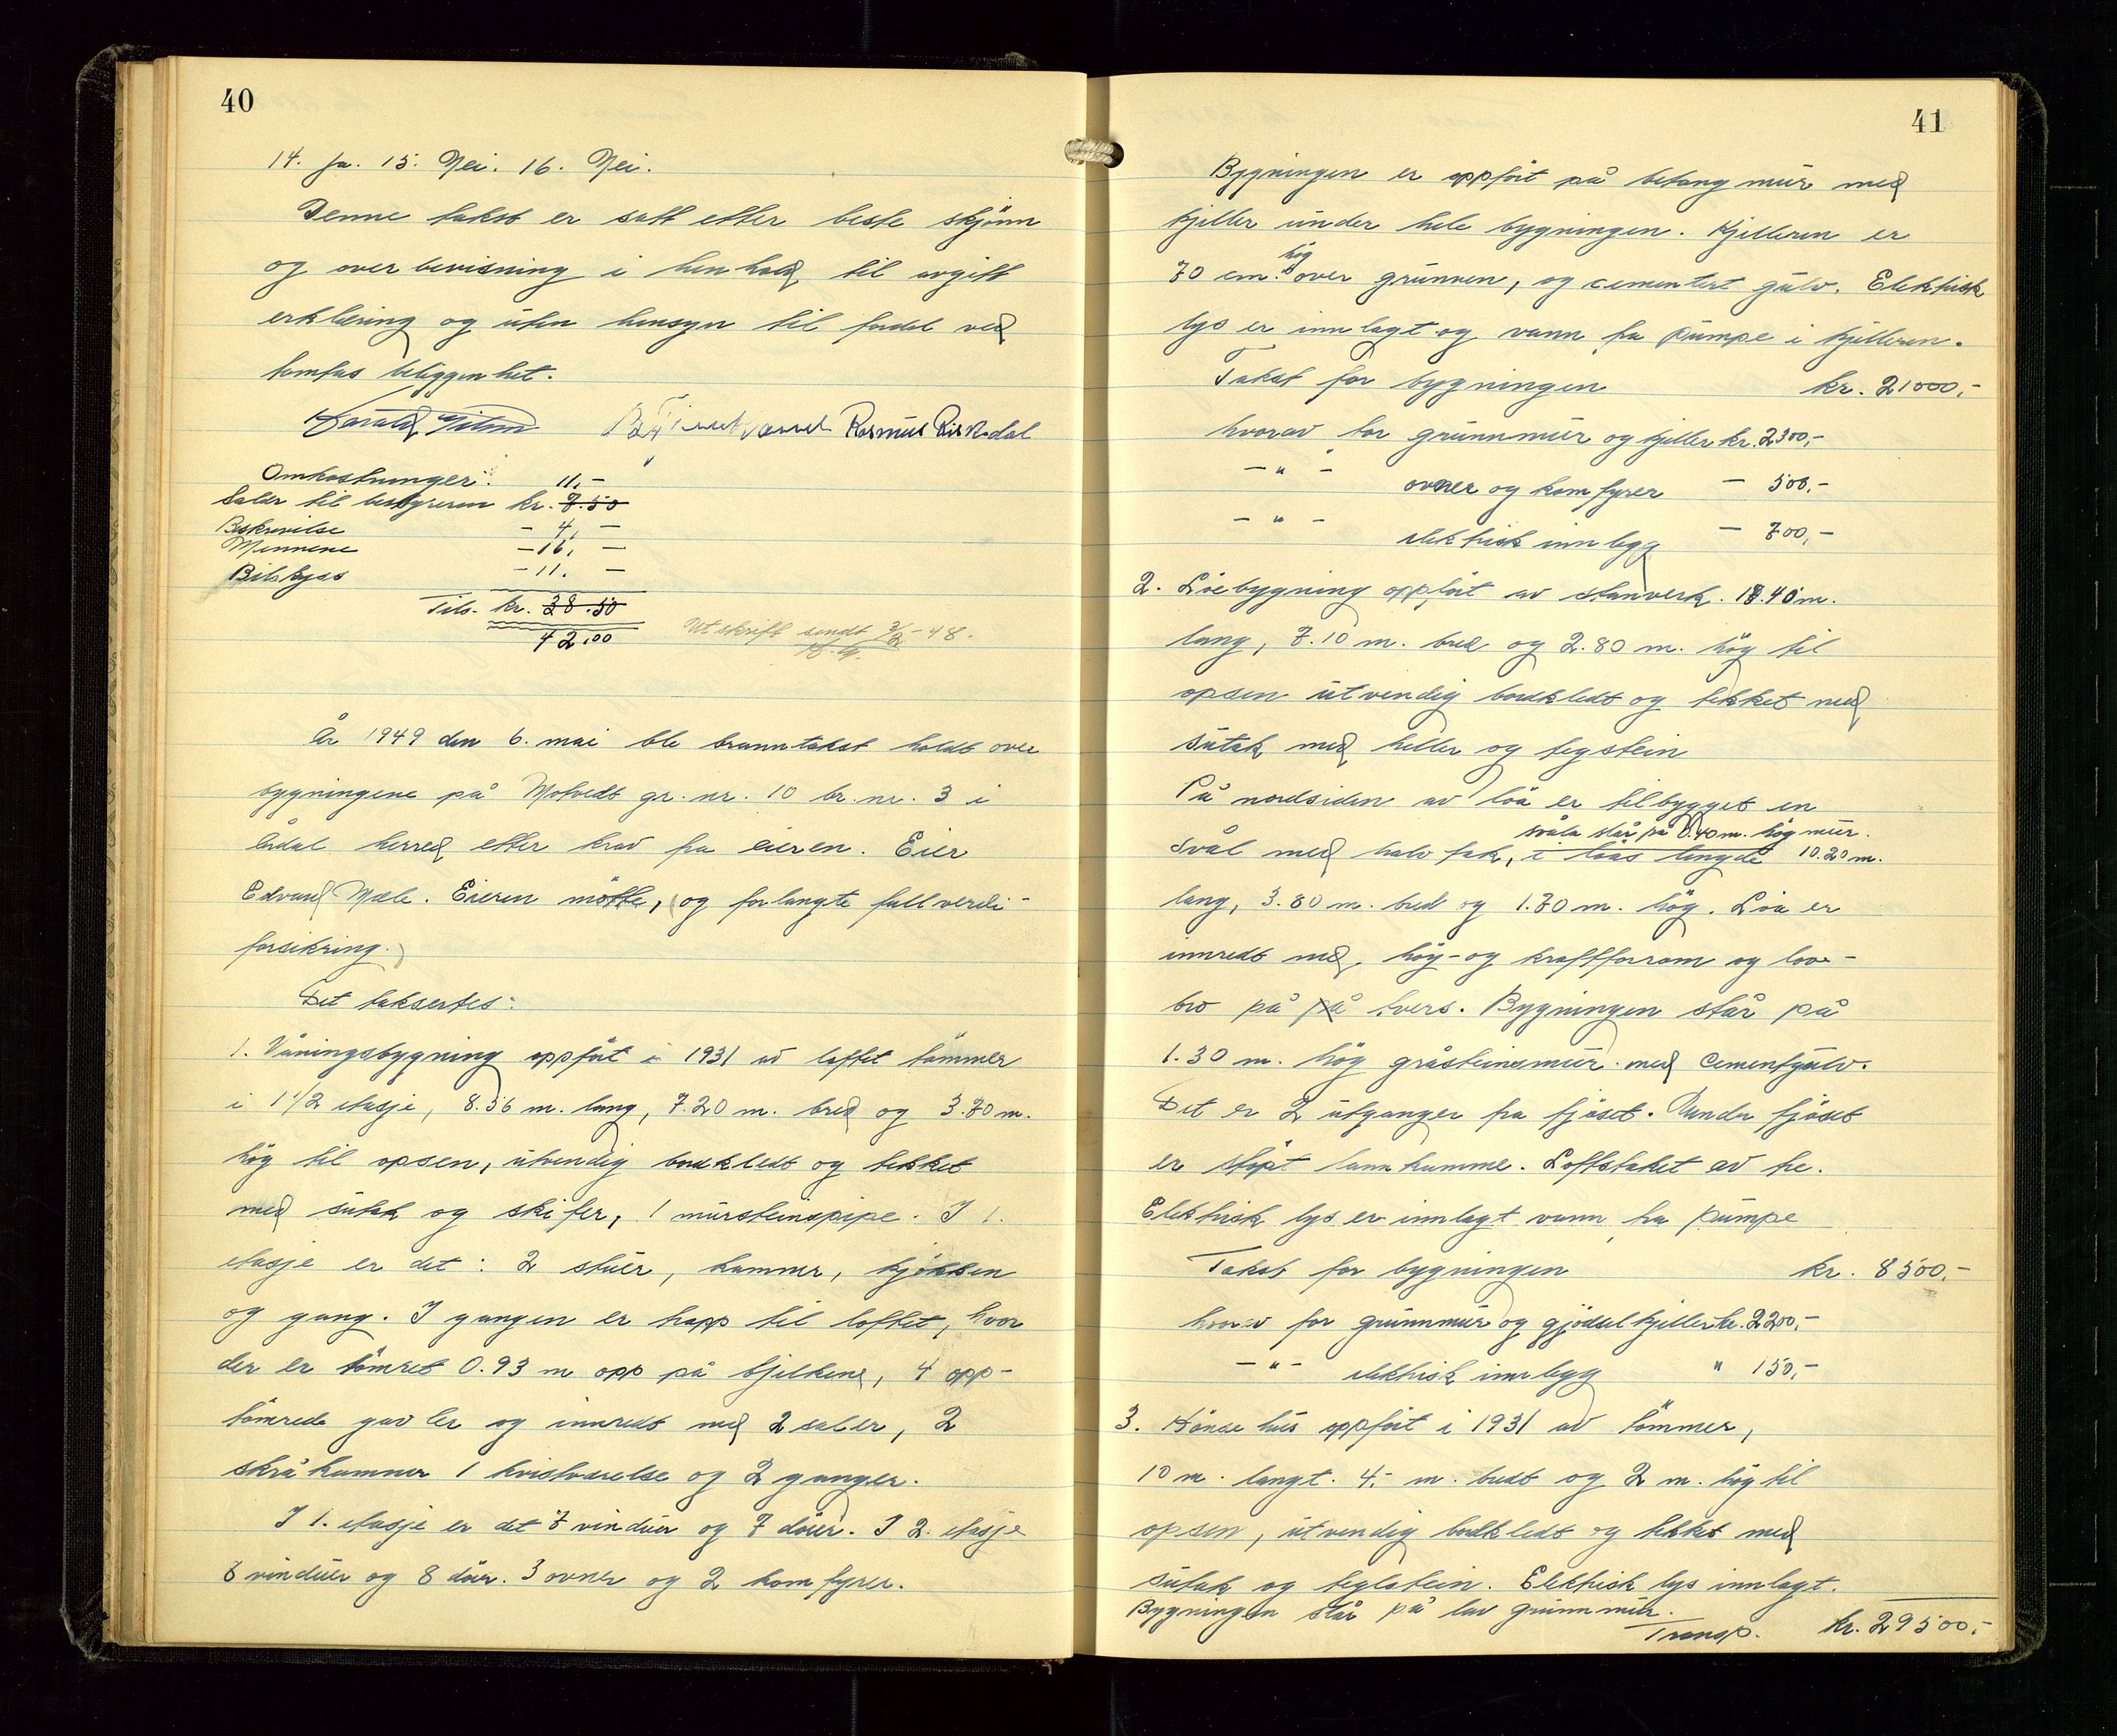 40
14. Ja. 15. Nei. 16. Nei.
Denne takst er satt etter beste skjönn
og overbevisning i henhold til avgitt
erklæring og uten hensyn til fordel ved
tomtas beliggenhet.
Harald Rasmus Riskedal
Omkostninger: 11,-
Salær til bestyreren kr. 7.50
Beskrivelse - 4, -
Mennene - 16, -
Bilskyss - 11. -
Tils. kr. 38.50
42,00
Utskrift sendt 3/2-48.
År 1949 den 6. mai ble branntakst holdt over
bygningene på Motvedt gr. nr. 10 br. nr. 3 i
Årdal herred etter krav fra eieren. Eier
Edvard Mæle. Eieren mötte, (og forlangte fullverdi-
forsikring.)
Det taksertes:
1. Våningsbygning oppfört i 1931 av loftet tömmer
i 1 1/2 etasje, 8.56 m. lang, 7.20 m. bred og 3.70 m.
hög til opsen, utvendig bordkledt og tekket
med sutak og skifer, 1 mursteinspipe. I 1.
etasje er det: 2 stuer, kammer, kjökken
og gang. I gangen er trapp til loftet, hvor
der er tömret 0.93 m opp på bjelkene, 4 opp-
tömrede gavler og innredt med 2 saler, 2
skråkammer 1 kvistværelse og 2 ganger.
I 1. etasje er det 7 vinduer og 7 dörer. I 2. etasje
8 vinduer og 8 dörer. 3 ovner og 2 komfyrer.
41
Bygningen er oppfört på betong mur med
kjeller under hele bygningen. Kjelleren er
hög
70 cm. over grunnen, og cementert gulv. Elektrisk
lys er innlagt og vann fra pumpe i kjelleren.
Takst for bygningen kr. 21000,-
hvorav for grunnmur og kjeller kr. 2300,-
- " - ovner og komfyrer - 500,-
- " - elektrisk innlegg - 700,-
2. Löebygning oppfört av stavverk. 18.40 m.
lang, 7.10 m. bred og 2.80 m. hög til
opsen utvendig bordkledt og tekket med
sutak med heller og tegstein
På nordsiden av löa er tilbygget en
svåla står på 0.40 m. hög mur.
Svål med halv tak, i löas lengde 10.20 m.
lang, 3.80 m. bred og 1.70 m. hög. Löa er
innredt med, höy- og kraftforrom og love-
bro på på tvers. Bygningen står på
1.30 m. hög gråsteinsmur med cementgulv.
Det er 2 utganger fra fjöset. Under fjöset
er stöpt lannkumme. Loftstaket av tre.
Elektrisk lys er innlagt vann fra pumpe
Takst for bygningen kr. 8500,-
hvorav for grunnmur og gjödselkjeller kr. 2200,-
- " - elektrisk innlegg " 150,-
3. Hönsehus oppfört i 1931 av tömmer,
10 m. langt. 4,- m. bredt og 2 m. hög til
opsen, utvendig bordkledt og tekket med
sutak og teglstein. Elektrisk lys innlagt.
Bygningen står på lav grunnmur.
Transp. kr. 29500,-